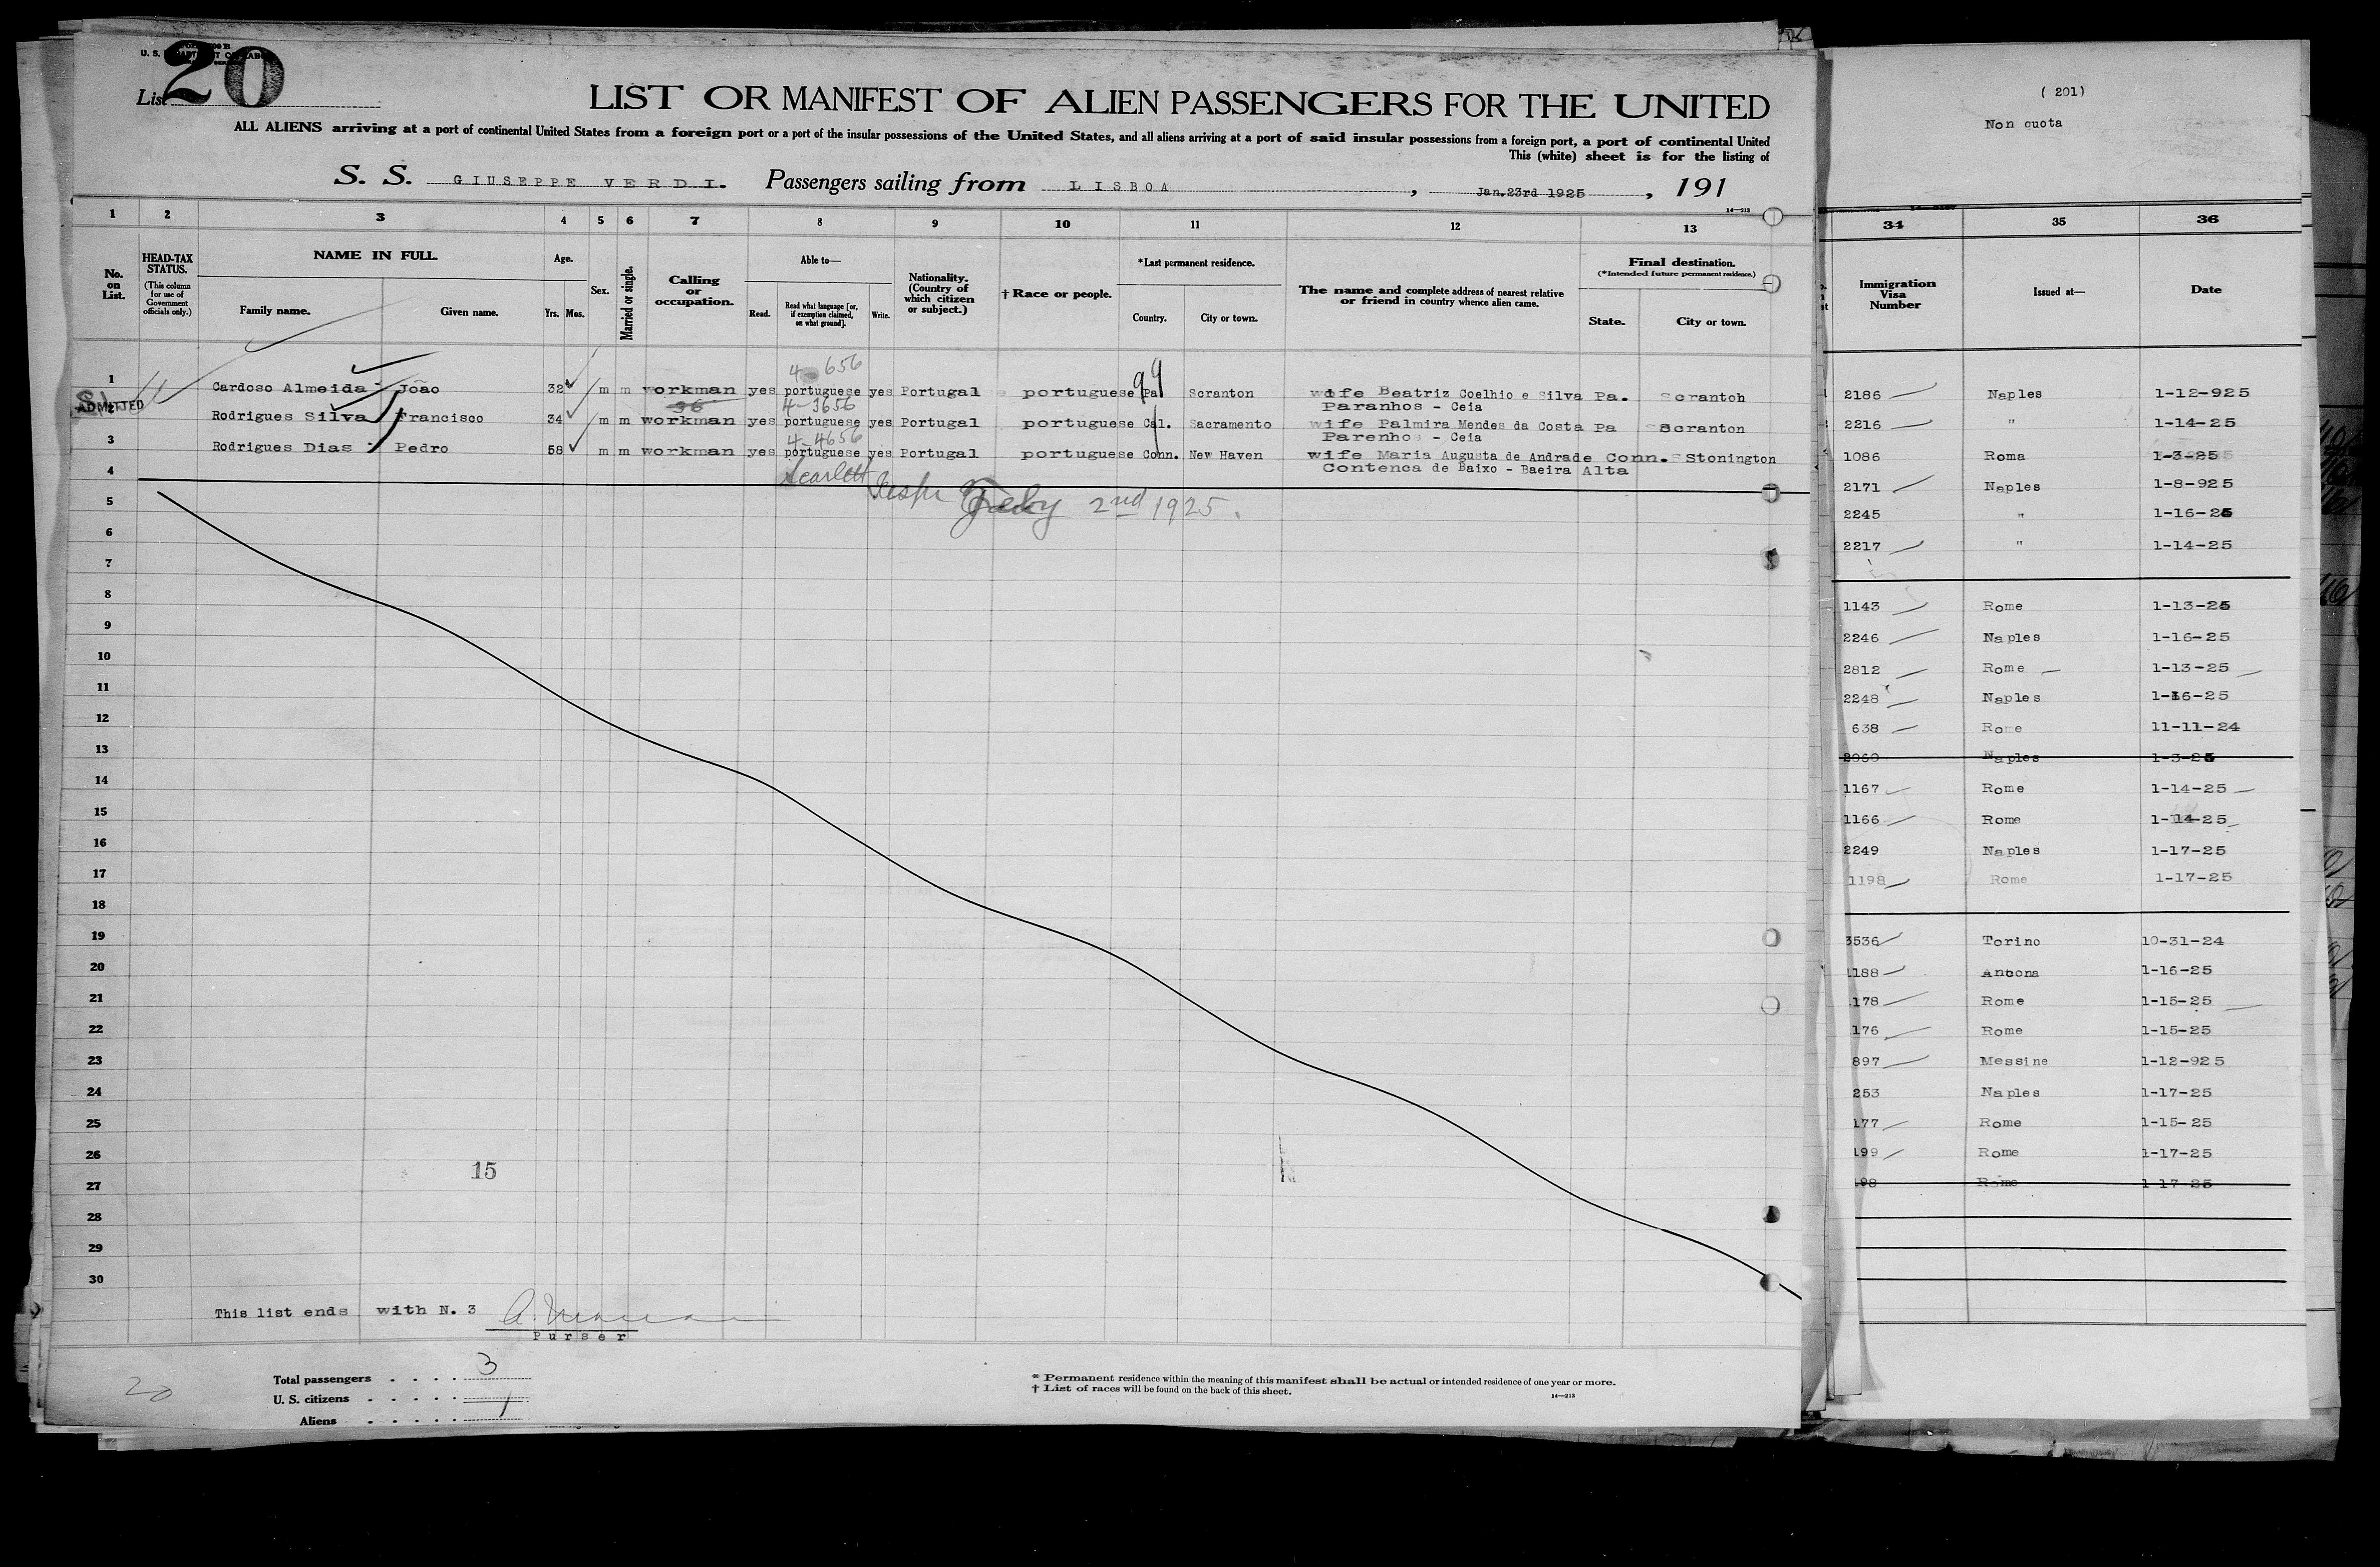 U. S. DEPARTMENT OF LABOR
List 20
LIST OR MANIFEST OF ALIEN PASSENGERS FOR THE UNITED
ALL ALIENS arriving at a port of continental United States from a foreign port or a port of the insular possessions of the United States, and all aliens arriving at a port of said insular possessions from a foreign port, a port of continental United
This (white) sheet is for the listing of
S. S. GIUSEPPE VERDI. Passengers sailing from LISBOA, Jan.23rd 1925, 191
14—213
1 2 3 4 5 6 7 8 9 10 11 12 13
No. on List.
HEAD-TAX STATUS.
(This column for use of Government officials only.)
NAME IN FULL.
Family name. Given name.
Age.
Yrs. Mos.
Sex.
Married or single.
Calling or occupation.
Able to—
Read. Read what language [or, if exemption claimed, on what ground]. Write.
Nationality. (Country of which citizen or subject.)
† Race or people.
*Last permanent residence.
Country. City or town.
The name and complete address of nearest relative or friend in country whence alien came.
Final destination.
(*Intended future permanent residence.)
State. City or town.
4 656
1 Cardoso Almeida João 32 m m workman yes portuguese yes Portugal portuguese Pa. Scranton wife Beatriz Coelhio e Silva Pa. Scranton
Paranhos - Ceia
36 4-3656
ADMITTED
2 Rodrigues Silva Francisco 34 m m workman yes portuguese yes Portugal portuguese Cal. Sacramento wife Palmira Mendes da Costa Pa Scranton
Parenhos - Ceia
4-4656
3 Rodrigues Dias Pedro 58 m m workman yes portuguese yes Portugal portuguese Conn. New Haven wife Maria Augusta de Andrade Conn. Stonington
Contenca de Baixo - Baeira Alta
99
4
Scarlett Feby 2nd 1925.
5
6
7
8
9
10
11
12
13
14
15
16
17
18
19
20
21
22
23
24
25
26
15
27
28
29
30
This list ends with N. 3
Purser
20
Total passengers . . . . 3
U. S. citizens . . . . .
Aliens . . . . .
* Permanent residence within the meaning of this manifest shall be actual or intended residence of one year or more.
† List of races will be found on the back of this sheet.
14—213
( 201)
Non cuota
34 35 36
Immigration Visa Number Issued at— Date
2186 Naples 1-12-925
2216 " 1-14-25
1086 Roma 1-3-25
2171 Naples 1-8-925
2245 " 1-16-25
2217 " 1-14-25
1143 Rome 1-13-25
2246 Naples 1-16-25
2812 Rome 1-13-25
2248 Naples 1-16-25
638 Rome 11-11-24
2060 Naples 1-3-25
1167 Rome 1-14-25
1166 Rome 1-14-25
2249 Naples 1-17-25
1198 Rome 1-17-25
3536 Torino 10-31-24
188 Ancona 1-16-25
178 Rome 1-15-25
176 Rome 1-15-25
897 Messine 1-12-925
253 Naples 1-17-25
177 Rome 1-15-25
199 Rome 1-17-25
98 Rome 1-17-25